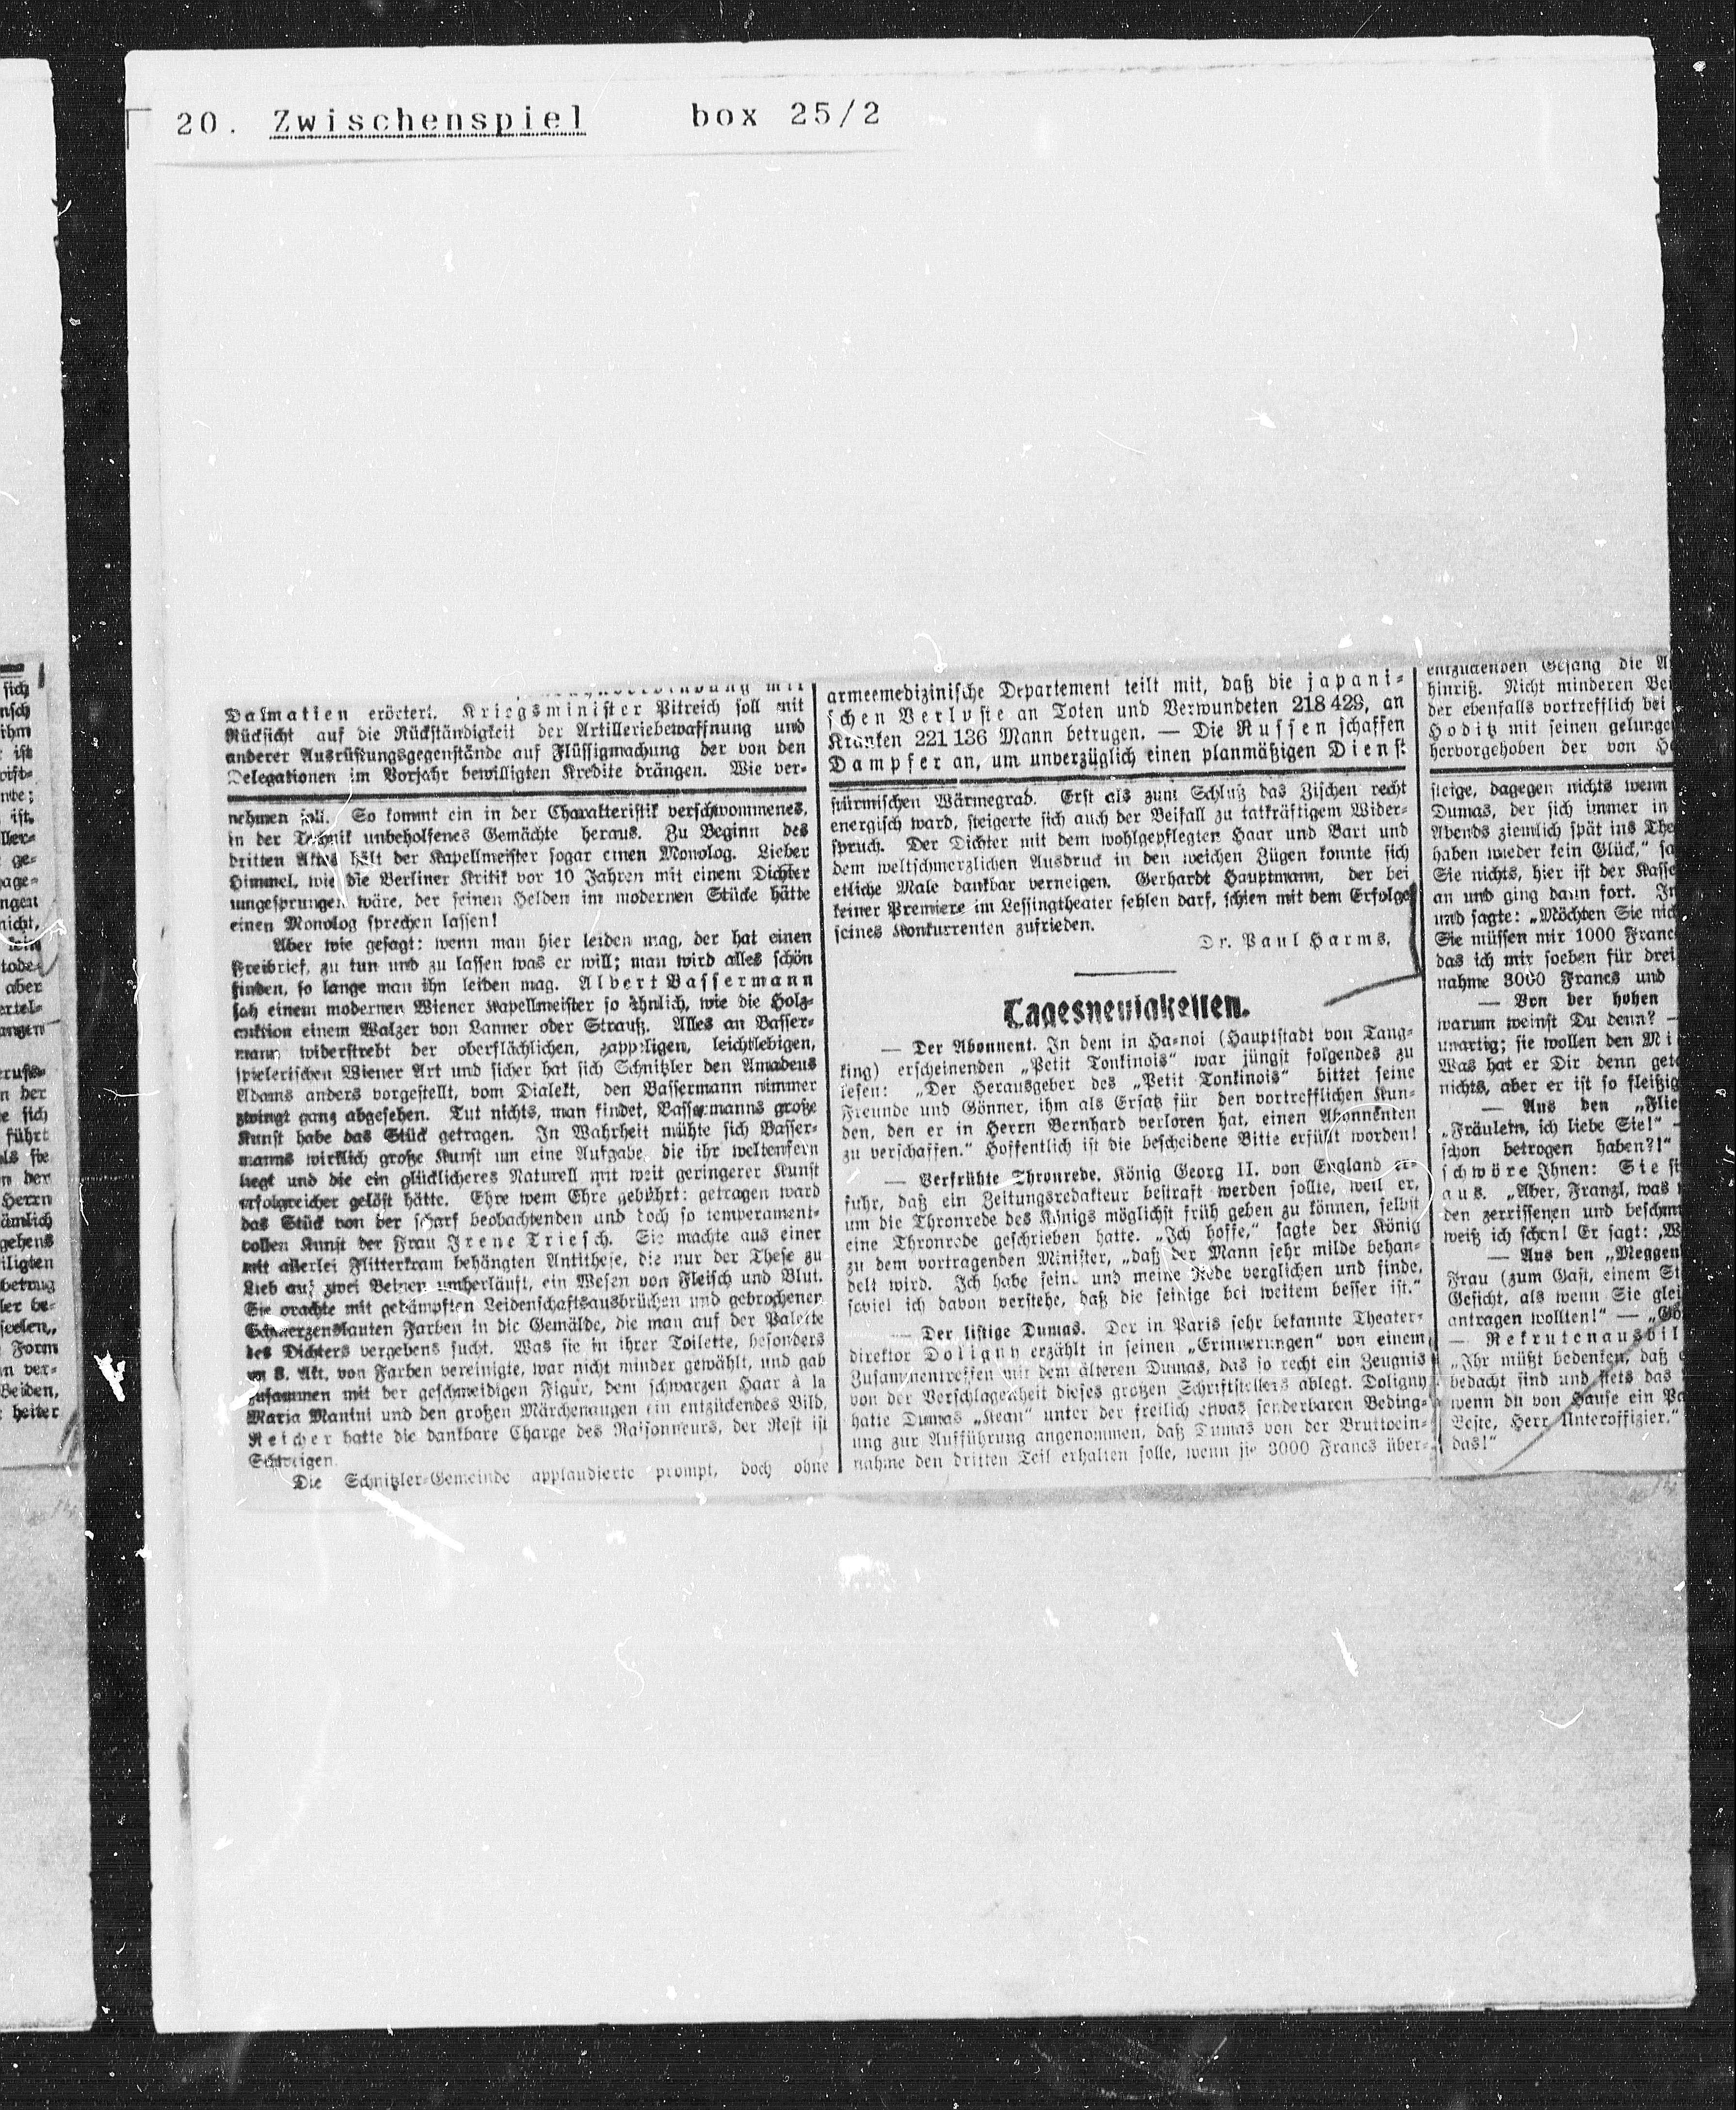 20. Zwischenspiel box 25/2
Dalmatien erörtert. Kriegsminister Pitreich soll mit
Rücksicht auf die Rückständigkeit der Artilleriebewaffnung und
anderer Ausrüstungsgegenstände auf Flüssigmachung der von den
Delegationen im Vorjahr bewilligten Kredite drängen. Wie ver-
nehmen soll. So kommt ein in der Charakteristik verschwommenes,
in der Technik unbeholfenes Gemächte heraus. Zu Beginn des
dritten Aktes hält der Kapellmeister sogar einen Monolog. Lieber
Himmel, wie die Berliner Kritik vor 10 Jahren mit einem Dichter
umgesprungen wäre, der seinen Helden im modernen Stücke hätte
einen Monolog sprechen lassen!
Aber wie gesagt: wenn man hier leiden mag, der hat einen
Freibrief, zu tun und zu lassen was er will; man wird alles schön
finden, so lange man ihn leiden mag. Albert Bassermann
sah einem modernen Wiener Kapellmeister so ähnlich, wie die Holz-
auktion einem Walzer von Lanner oder Strauß. Alles an Basser-
mann widerstrebt der oberflächlichen, zappeligen, leichtlebigen,
spielerischen Wiener Art und sicher hat sich Schnitzler den Amadeus
Adams anders vorgestellt, vom Dialekt, den Bassermann nimmer
zwingt ganz abgesehen. Tut nichts, man findet, Bassermanns große
Kunst habe das Stück getragen. In Wahrheit mühte sich Basser-
manns wirklich große Kunst um eine Aufgabe, die ihr weltenfern
liegt und die ein glücklicheres Naturell mit weit geringerer Kunst
erfolgreicher gelöst hätte. Ehre wem Ehre gebührt: getragen ward
das Stück von der scharf beobachtenden und doch so temperament-
vollen Kunst der Frau Irene Triesch. Sie machte aus einer
mit allerlei Flitterkram behängten Antithese, die nur der These zu
Lieb auf zwei Beinen umherläuft, ein Wesen von Fleisch und Blut.
Sie brachte mit gedämpften Leidenschaftsausbrüchen und gebrochenen
Schmerzenslauten Farben in die Gemälde, die man auf der Palette
des Dichters vergebens sucht. Was sie in ihrer Toilette, besonders
im 3. Akt, von Farben vereinigte, war nicht minder gewählt, und gab
zusammen mit der geschmeidigen Figur, dem schwarzen Haar à la
Maria Manini und den großen Märchenaugen ein entzückendes Bild.
Reicher hatte die dankbare Charge des Raisonneurs, der Rest ist
Schweigen.
Die Schnitzler-Gemeinde applaudierte prompt, doch ohne
armeemedizinische Departement teilt mit, daß die japani-
schen Verluste an Toten und Verwundeten 218 429, an
Kranken 221 136 Mann betrugen. — Die Russen schaffen
Dampfer an, um unverzüglich einen planmäßigen Dienst
stürmischen Wärmegrad. Erst als zum Schluß das Zischen recht
energisch ward, steigerte sich auch der Beifall zu tatkräftigem Wider-
spruch. Der Dichter mit dem wohlgepflegten Haar und Bart und
dem weltschmerzlichen Ausdruck in den weichen Zügen konnte sich
etliche Male dankbar verneigen. Gerhardt Hauptmann, der bei
keiner Premiere im Lessingtheater fehlen darf, schien mit dem Erfolge
seines Konkurrenten zufrieden.
Dr. Paul Harms.
Tagesneuigkeiten.
— Der Abonnent. In dem in Ha-noi (Hauptstadt von Tang-
king) erscheinenden „Petit Tonkinois“ war jüngst folgendes zu
lesen: „Der Herausgeber des „Petit Tonkinois“ bittet seine
Freunde und Gönner, ihm als Ersatz für den vortrefflichen Kun-
den, den er in Herrn Bernhard verloren hat, einen Abonnenten
zu verschaffen.“ Hoffentlich ist die bescheidene Bitte erfüllt worden!
— Verfrühte Thronrede. König Georg II. von England er-
fuhr, daß ein Zeitungsredakteur bestraft werden sollte, weil er,
um die Thronrede des Königs möglichst früh geben zu können, selbst
eine Thronrede geschrieben hatte. „Ich hoffe,“ sagte der König
zu dem vortragenden Minister, „daß der Mann sehr milde behan-
delt wird. Ich habe seine und meine Rede verglichen und finde,
soviel ich davon verstehe, daß die seinige bei weitem besser ist.“
— Der listige Dumas. Der in Paris sehr bekannte Theater-
direktor Doligny erzählt in seinen „Erinnerungen“ von einem
Zusammentreffen mit dem älteren Dumas, das so recht ein Zeugnis
von der Verschlagenheit dieses großen Schriftstellers ablegt. Doligny
hatte Dumas „Kean“ unter der freilich etwas sonderbaren Beding-
ung zur Aufführung angenommen, daß Dumas von der Bruttoein-
nahme den dritten Teil erhalten solle, wenn sie 3000 Francs über-
entzückenden Gesang die
hinriß. Nicht minderen
der ebenfalls vortrefflich bei
Hoditz mit seinen
hervorgehoben der von
steige, dagegen nichts wenn
Dumas, der sich immer in
Abends ziemlich spät ins
haben wieder kein Glück,“
Sie nichts, hier ist der
an und ging dann fort.
und sagte: „Möchten Sie
Sie müssen mir 1000
das ich mir soeben für drei
nahme 3000 Francs und
— Von der hohen
warum weinst Du denn? —
unartig; sie wollen den
Was hat er Dir denn
nichts, aber er ist so
— Aus den
„Fräulein, ich liebe Sie!“ —
schon betrogen haben?!“
schwöre Ihnen: Sie
aus. „Aber, Franzl, was
den zerrissenen und
weiß ich schon! Er sagt:
— Aus den
Frau (zum Gast, einem
Gesicht, als wenn Sie
antragen wollten!“ —
— Rekrutenausbil
„Ihr müßt bedenken, daß
bedacht sind und stets das
wenn du von Hause ein
Beste, Herr Unteroffizier.“
das!“
sich
ihm
ist
ist,
nicht,
aber
führt
der
Herrn
Form
Beiden,
heiter